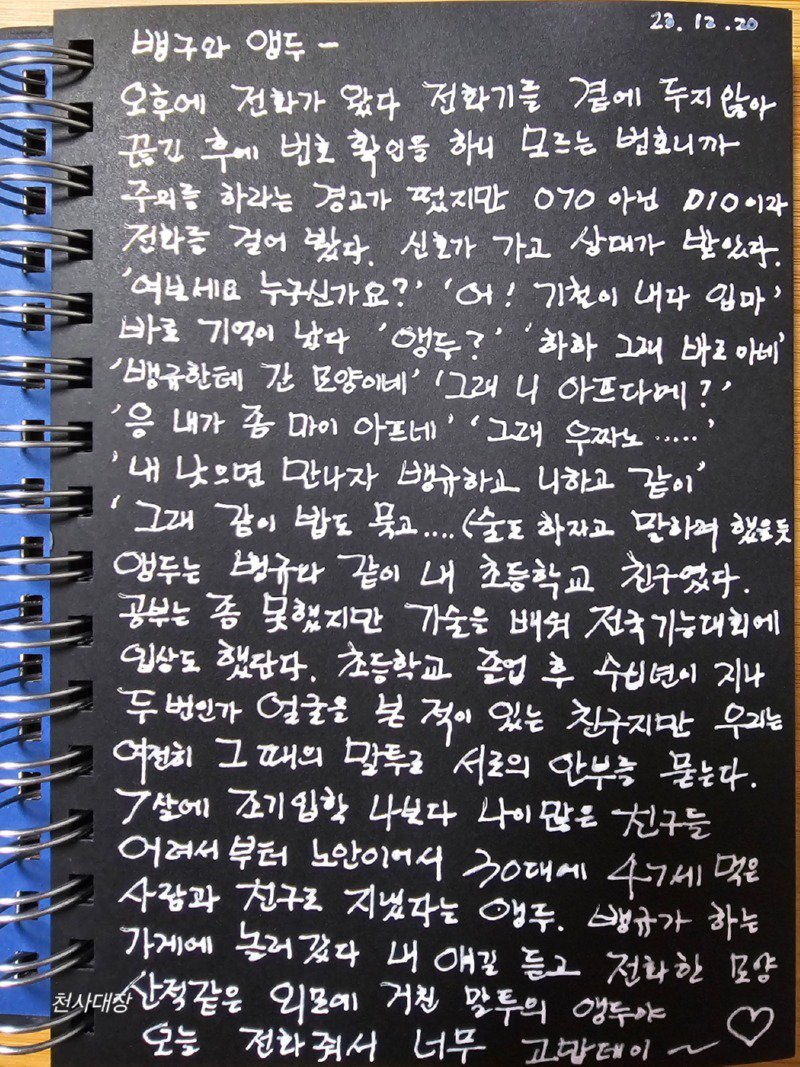 23.12.20
뱅구와 앵두 -
오후에 전화가 왔다 전화기를 곁에 두지 않아
끊긴 후에 번호 확인을 하니 모르는 번호니까
주의를 하라는 경고가 떴지만 070 아닌 010이라
전화를 걸어 봤다. 신호가 가고 상대가 받았다.
'여보세요 누구신가요?' '어! 기철이 내다 임마'
바로 기억이 났다 '앵두?' '하하 그래 바로 아네'
'뱅규한테 간 모양이네' '그래 니 아프다메?'
'응 내가 좀 마이 아프네' '그래 우짜노 .....'
'내 낫으면 만나자 뱅규하고 니하고 같이'
'그래 같이 밥도 묵고....(술도 하자고 말하려 했을듯
앵두는 뱅규와 같이 내 초등학교 친구였다.
공부는 좀 못했지만 기술을 배워 전국기능대회에
입상도 했단다. 초등학교 졸업 후 수십년이 지나
두번인가 얼굴을 본 적이 있는 친구지만 우리는
여전히 그 때의 말투로 서로의 안부를 묻는다.
7살에 조기입학 나보다 나이많은 친구들
어려서부터 노안이어서 30대에 47세 먹은
사람과 친구로 지냈다는 앵두. 뱅규가 하는
가게에 놀러갔다 내 얘길 듣고 전화한 모양
산적같은 외모에 거친 말투의 앵두야
오늘 전화 줘서 너무 고맙데이 ~ ♡
천사대장